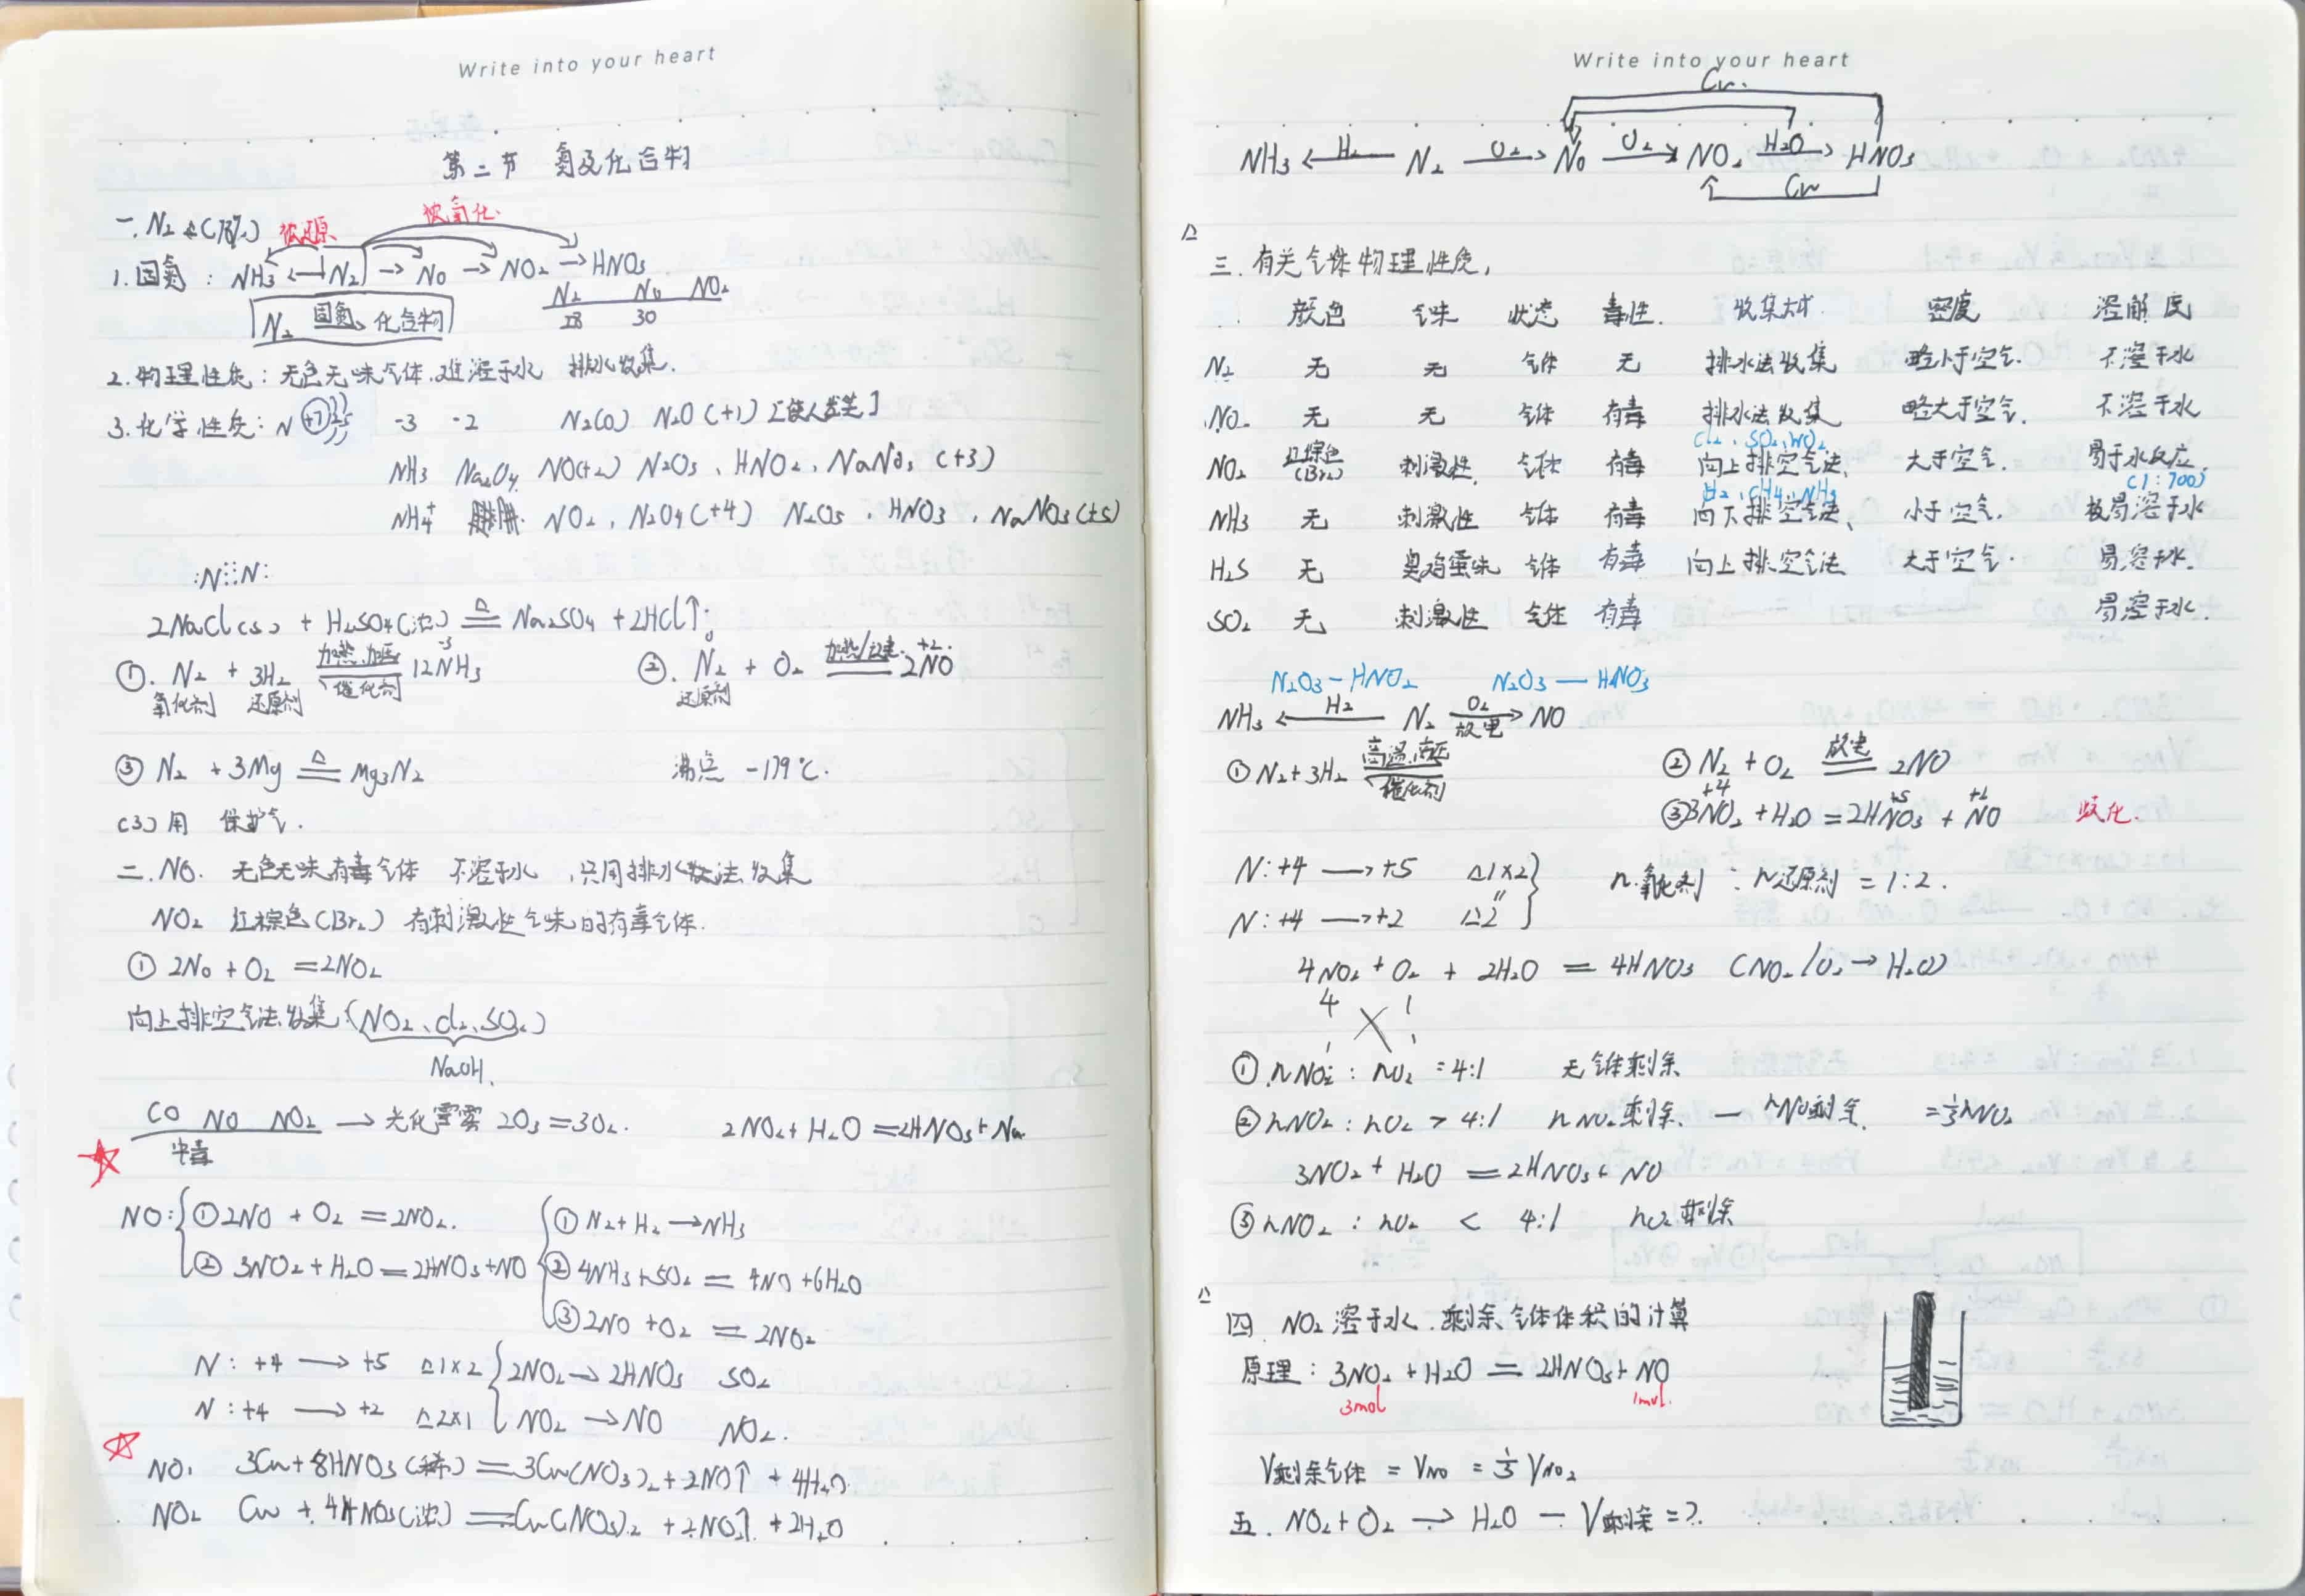 Write into your heart
第二节 氮及化合物
一. N₂ (78%) 被还原 被氧化
1. 固氮: NH₃ ← N₂ → NO → NO₂ → HNO₃
N₂ 固氮 化合物
N₂ NO NO₂
28 30
2. 物理性质: 无色无味气体.难溶于水 排水收集.
3. 化学性质: N +7 2 5 -3 -2 N₂(0) N₂O (+1) [使人发笑]
NH₃ NO(+2) N₂O₃、HNO₂、 (+3)
NH₄⁺ NO₂、N₂O₄(+4) N₂O₅、HNO₃、NaNO₃(+5)
:N⋮⋮N:
2NaCl(s) + H₂SO₄(浓) =△= Na₂SO₄ + 2HCl↑
①. N₂ + 3H₂ 加热.加压 催化剂 2NH₃ -3
氧化剂 还原剂
②. N₂ + O₂ 加热/放电 2NO +2
还原剂
③ N₂ + 3Mg =△= Mg₃N₂ 沸点 -179℃.
(3) 用 保护气.
二. NO. 无色无味有毒气体 不溶于水 ,只用排水法收集
NO₂ 红棕色(Br₂) 有刺激性气味的有毒气体.
① 2NO + O₂ = 2NO₂
向上排空气法收集(NO₂、Cl₂、SO₂)
NaOH.
CO NO NO₂ → 光化雾 2O₃=3O₂. 2NO₂+H₂O=2HNO₃+No
中毒
NO: ①2NO + O₂ = 2NO₂.
② 3NO₂+H₂O=2HNO₃+NO
① N₂+H₂ → NH₃
② 4NH₃+5O₂ = 4NO+6H₂O
③ 2NO + O₂ = 2NO₂
N: +4 → +5 △1×2 2NO₂ → 2HNO₃ SO₂
N: +4 → +2 △2×1 NO₂ → NO NO₂.
NO. 3Cu+8HNO₃(稀) = 3Cu(NO₃)₂+2NO↑ + 4H₂O
NO₂ Cu + 4HNO₃(浓) = Cu(NO₃)₂ + 2NO₂↑ + 2H₂O
Write into your heart
Cu.
NH₃ ←H₂— N₂ —O₂→ NO —O₂→ NO₂ —H₂O→ HNO₃
Cu
三. 有关气体物理性质,
颜色 气味 状态 毒性. 收集方式 密度 溶解度
N₂ 无 无 气体 无 排水法收集 略小于空气. 不溶于水
NO 无 无 气体 有毒 排水法收集 略大于空气. 不溶于水
Cl₂、SO₂、NO₂
NO₂ 红棕色(Br₂) 刺激性 气体 有毒 向上排空气法、 大于空气. 易于水反应.
H₂、CH₄、NH₃ (1:700)
NH₃ 无 刺激性 气体 有毒 向下排空气法、 小于空气. 极易溶于水
H₂S 无 臭鸡蛋味 气体 有毒 向上排空气法 大于空气. 易溶于水.
SO₂ 无 刺激性 气体 有毒 易溶于水.
N₂O₃-HNO₂ N₂O₃—HNO₃
NH₃ ←H₂— N₂ —O₂ 放电→ NO
① N₂+3H₂ 高温.高压 催化剂
② N₂ + O₂ =放电= 2NO
+4 +5 +2
③3NO₂ + H₂O = 2HNO₃ + NO 歧化.
N: +4 → +5 △1×2
N: +4 → +2 △2
n氧化剂 : n还原剂 = 1:2.
4NO₂ + O₂ + 2H₂O = 4HNO₃ (NO₂/O₂ → H₂O)
4 1
1 1
①.nNO₂ : nO₂ = 4:1 无气体剩余
② nNO₂ : nO₂ > 4:1 nNO₂剩余. — nNO剩气. = ⅓nNO₂
3NO₂ + H₂O = 2HNO₃ + NO
③ nNO₂ : nO₂ < 4:1 nO₂剩余
四. NO₂ 溶于水.剩余气体体积的计算
原理: 3NO₂ + H₂O = 2HNO₃ + NO
3mol 1mol.
V剩余气体 = VNO = ⅓ VNO₂
五. NO₂+O₂ → H₂O — V剩余=?